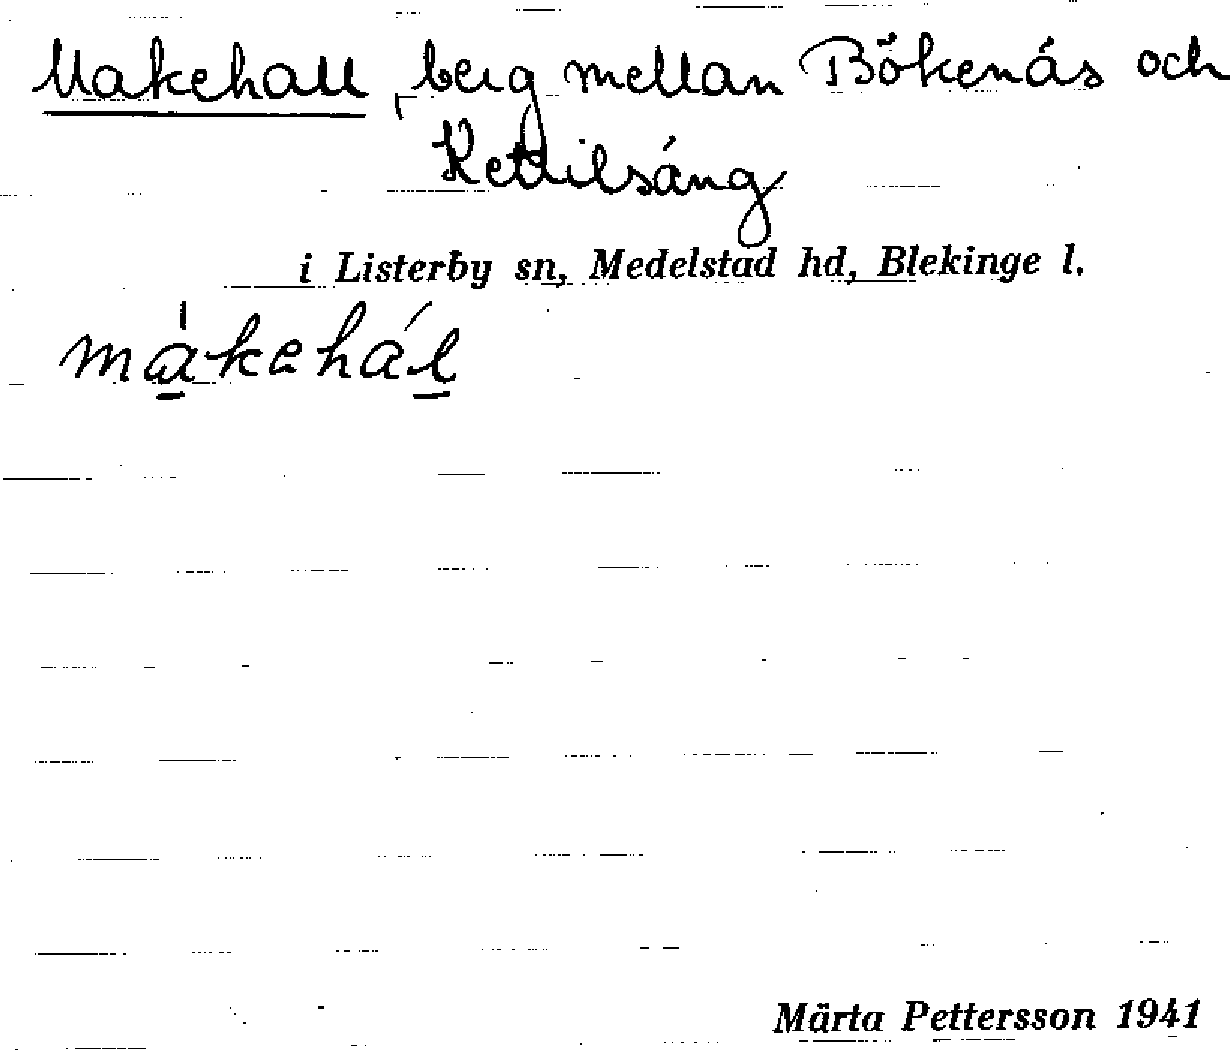 Makehall, berg mellan Bökenås och
Kettilsäng
i Listerby sn, Medelstad hd, Blekinge l.
màkehál
Märta Pettersson 1941